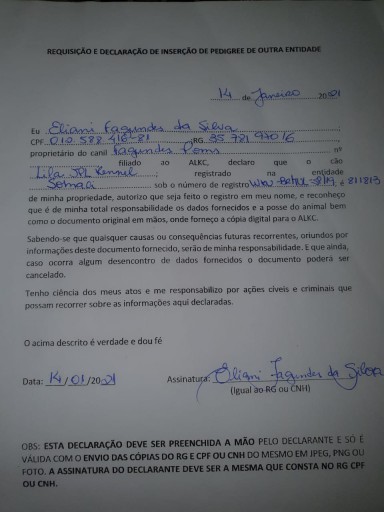 REQUISIÇÃO E DECLARAÇÃO DE INSERÇÃO DE PEDIGREE DE OUTRA ENTIDADE
14 de Janeiro 2021
Eu Eliani Fagundes da Silva
CPF 010 588 416-81 RG 35 781 970 16
proprietário do canil Fagundes Poms nº
filiado ao ALKC, declaro que o cão
Lila JPL Kennel, registrado na entidade
sob o número de registro é
de minha propriedade, autorizo que seja feito o registro em meu nome, e reconheço
que é de minha total responsabilidade os dados fornecidos e a posse do animal bem
como o documento original em mãos, onde forneço a cópia digital para o ALKC.
Sabendo-se que quaisquer causas ou consequências futuras recorrentes, oriundos por
informações deste documento fornecido, serão de minha responsabilidade. E que ainda,
caso ocorra algum desencontro de dados fornecidos o documento poderá ser
cancelado.
Tenho ciência dos meus atos e me responsabilizo por ações cíveis e criminais que
possam recorrer sobre as informações aqui declaradas.
O acima descrito é verdade e dou fé
Data: 14/01/2021 Assinatura: Eliani Fagundes da Silva
(Igual ao RG ou CNH)
OBS: ESTA DECLARAÇÃO DEVE SER PREENCHIDA A MÃO PELO DECLARANTE E SÓ É
VÁLIDA COM O ENVIO DAS CÓPIAS DO RG E CPF OU CNH DO MESMO EM JPEG, PNG OU
FOTO. A ASSINATURA DO DECLARANTE DEVE SER A MESMA QUE CONSTA NO RG CPF
OU CNH.